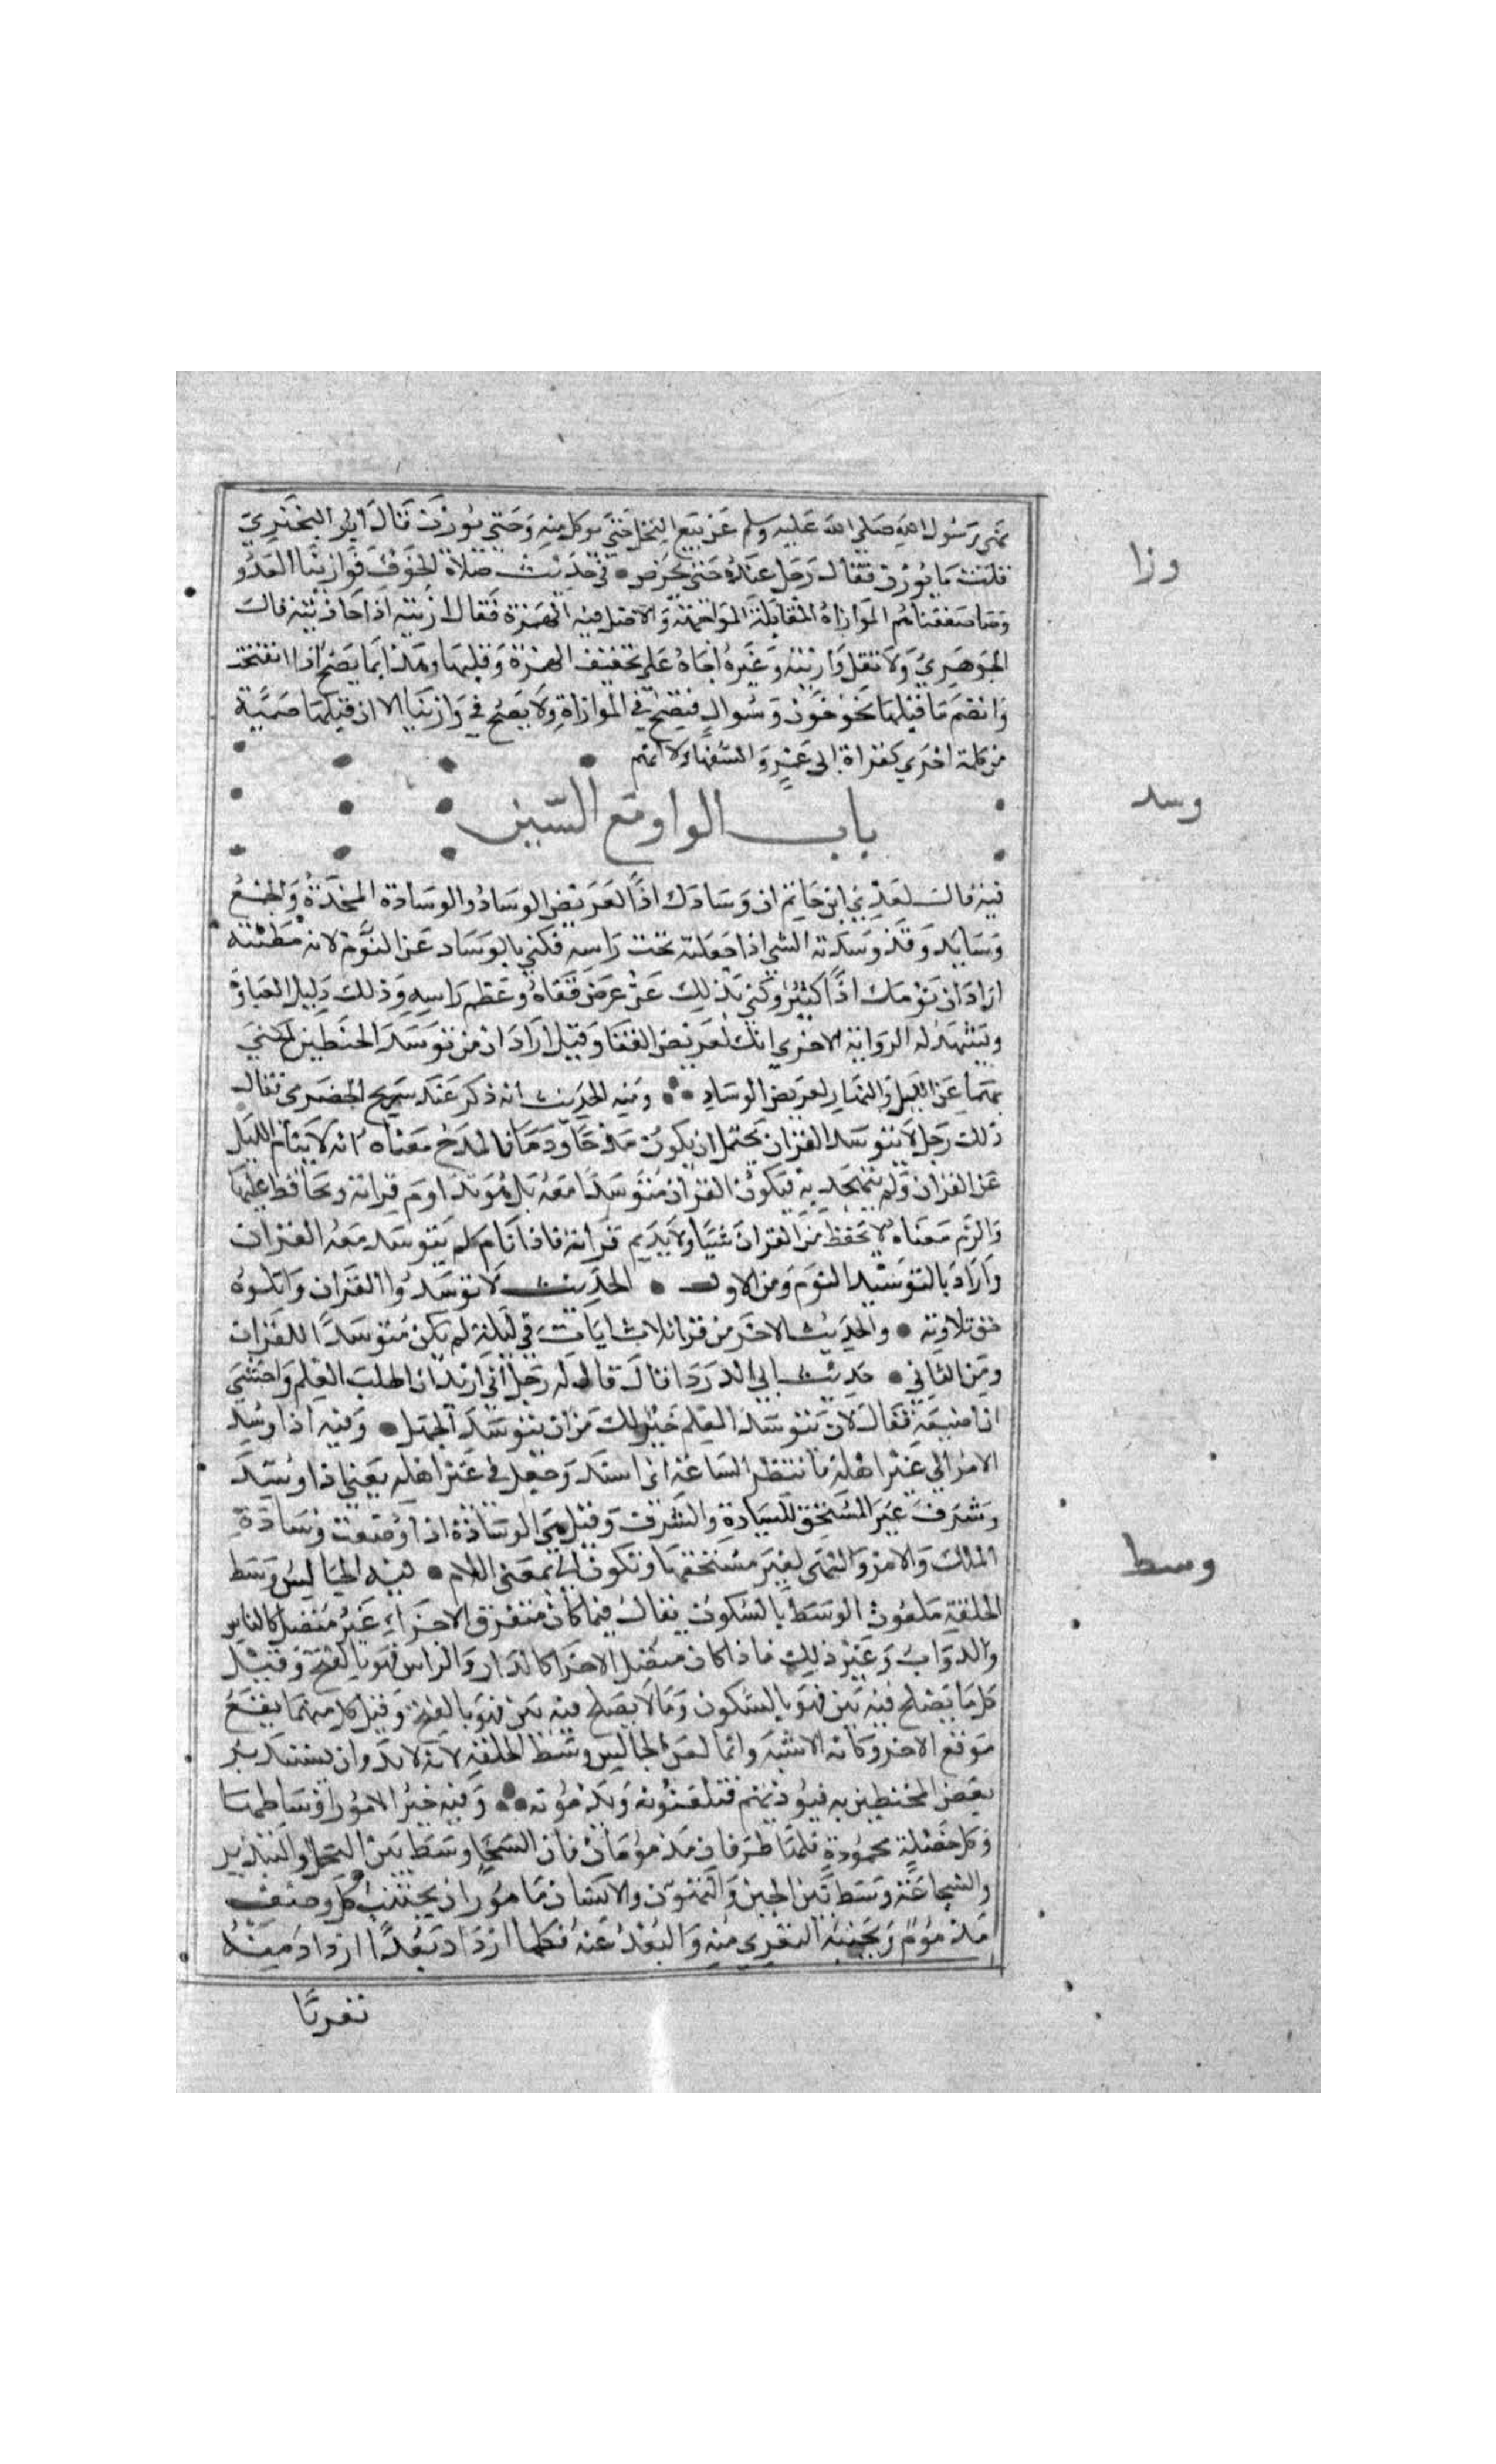 نهى رسول الله صلى الله عليه وسلم عن بيع النخل حتى يوكل منه وحتى يوزن قال ابو البختري
قلت ما يوزن فقال رجل عنده حتى يحرص • في حديث صلاة الخوف فوازينا العدو
وصاففناهم الموازاة المقابلة المواجهة والاصل فيه الهمزة فقال ازيته اذا حاذيته قال
الجوهري ولا تقل وازيته وغيره اجازه على تخفيف الهمزة وقلبها وهذا انما يصح اذا انفتحت
وانضم ما قبلها نحو جون وسوال فيصح في الموازاة ولا يصح في وازينا الا ان قبلها ضمة
من كلمة اخرى كقراة ابي عمرو السفهاء ولا انهم
باب الواو مع السين
فيه قال لعدي ابن حاتم ان وسادك اذا لعريض الوساد والوسادة المخدة والجمع
وسايد وقد وسدته الشي اذا جعلته تحت راسه فكنى بالوساد عن النوم لانه مظنته
اراد ان نومك اذا كثير وكنى بذلك عن عرض قفاه وعظم راسه وذلك دليل الغباوة
ويشهد له الرواية الاخرى انك لعريض القفا وقيل اراد ان من توسد الخيطين المكنى
بهما عن الليل والنهار لعريض الوساد ومنه الحديث انه ذكر عنده شريح الحضرمي فقال
ذلك رجل لا يتوسد القران يحتمل ان يكون مدحا وذما فالمدح معناه انه لا ينام الليل
عن القران ولم يتهجد به فيكون القران متوسدا معه بل هو يداوم قراته ويحافظ عليها
والذم معناه لا يحفظ من القران شيا ولا يديم قراته فاذا نام لم يتوسد معه القران
واراد بالتوسيد النوم ومن الاول • الحديث لا توسدوا القران واتلوه
حق تلاوته • والحديث الاخر من قرا ثلاث ايات في ليلة لم يكن متوسدا للقران
ومن الثاني • حديث ابي الدردا قال قال له رجل اني اريد ان اطلب العلم واخشى
ان اضيعه فقال لان تتوسد العلم خير لك من ان تتوسد الجهل • وفيه اذا وسد
الامر الى غير اهله فانتظر الساعة اي اسند وجعل في غير اهله يعني اذا وسد
وشرف غير المستحق للسيادة والشرف وقيل هي الوسادة اذا وضعت وسادة
الملك والامر والنهي لغير مستحقها وتكون الى بمعنى اللام • فيه الجالس وسط
الحلقة ملعون الوسط بالسكون يقال فيما كان متفرق الاجزاء غير متصل كالناس
والدواب وغير ذلك فاذا كان متصل الاجزا كالدار والراس فهو بالفتح وقيل
كل ما يصلح فيه بين فهو بالسكون وما لا يصلح فيه بين فهو بالفتح وقيل كل منهما يقع
موقع الاخر وكانه الاشبه وانما لعن الجالس وسط الحلقة لانه لابد وان يستدبر
بعض المحيطين به فيوذيهم فيلعنونه ويذمونه وفيه خير الامور اوساطها
وكل خصلة محمودة فلها طرفان مذمومان فان السخا وسط بين البخل والتبذير
والشجاعة وسط بين الجبن والتهور والانسان مامور ان يجتنب كل وصف
مذموم وتجنبه التعري منه والبعد عنه فكلما ازداد بعدا ازداد منه
تعريا
وزا
وسد
وسط